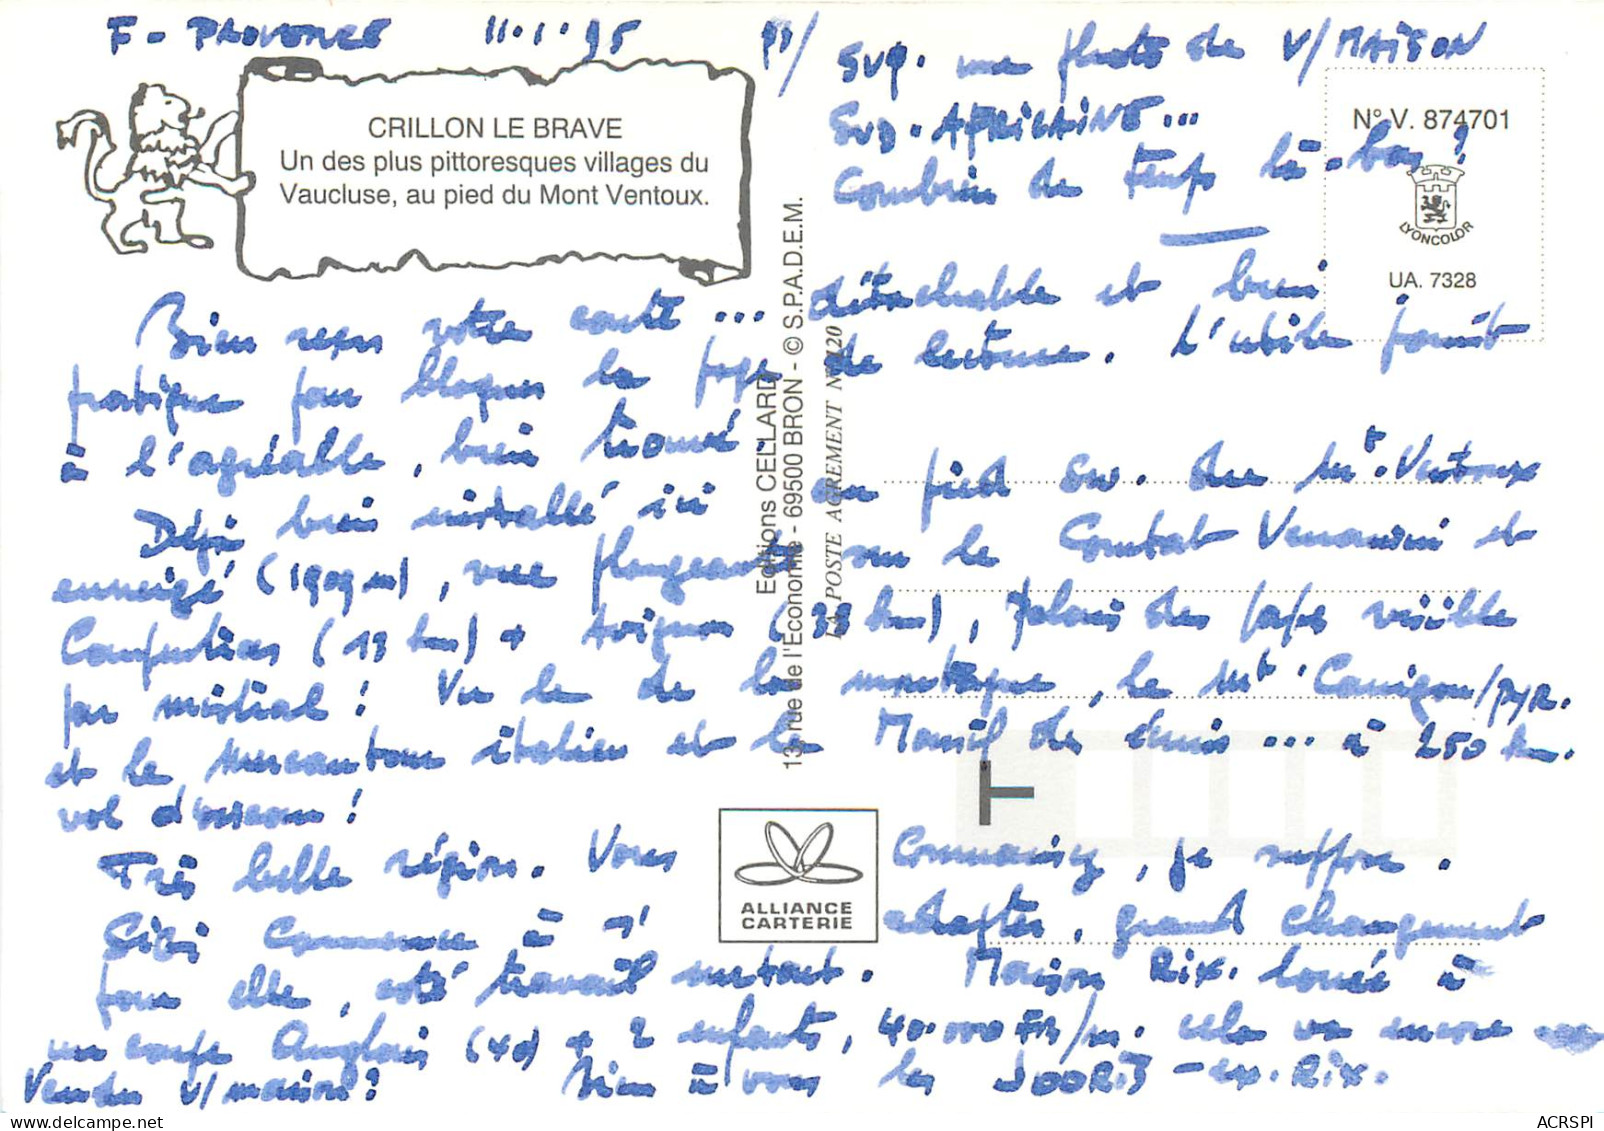 F - PROVENCE 11.1.95 PS/
SVP. une photo de V/MAISON
SUD-AFRICAINE...
Combien de temps là-bas?
CRILLON LE BRAVE
Un des plus pittoresques villages du
Vaucluse, au pied du Mont Ventoux.
N° V. 874701
LYONCOLOR
UA. 7328
Editions CELLARD
13, rue de l'Economie - 69500 BRON - © S.P.A.D.E.M.
LA POSTE AGREMENT N° 120
Bien reçu votre carte ... détachable et bien
pratique pour bloquer la page de lecture. L'utile joint
à l'agréable, bien trouvé.
Déjà bien installé ici au pied SW. du Mt. Ventoux
enneigé (1909 m), vue plongeante sur le Comtat Venaissin et
Carpentras (13 km) + Avignon (38 km), Palais des Papes visible
par mistral! Vu le de la montagne, le Mt Canigou/PYR.
et le Mercantour italien et le Massif des ... à 250 km.
vol d'oiseau!
Très belle région. Vous connaissez, je suppose.
Gigi commence à s'adapter, grand changement
pour elle, côté travail surtout. Maison Rix. louée à
un couple Anglais (40) + 2 enfants, 40.000 FB/m. cela va encore
Vendu v/maison? Bien à vous les JOORIS - ex. Rix.
ALLIANCE
CARTERIE
ACRSPI